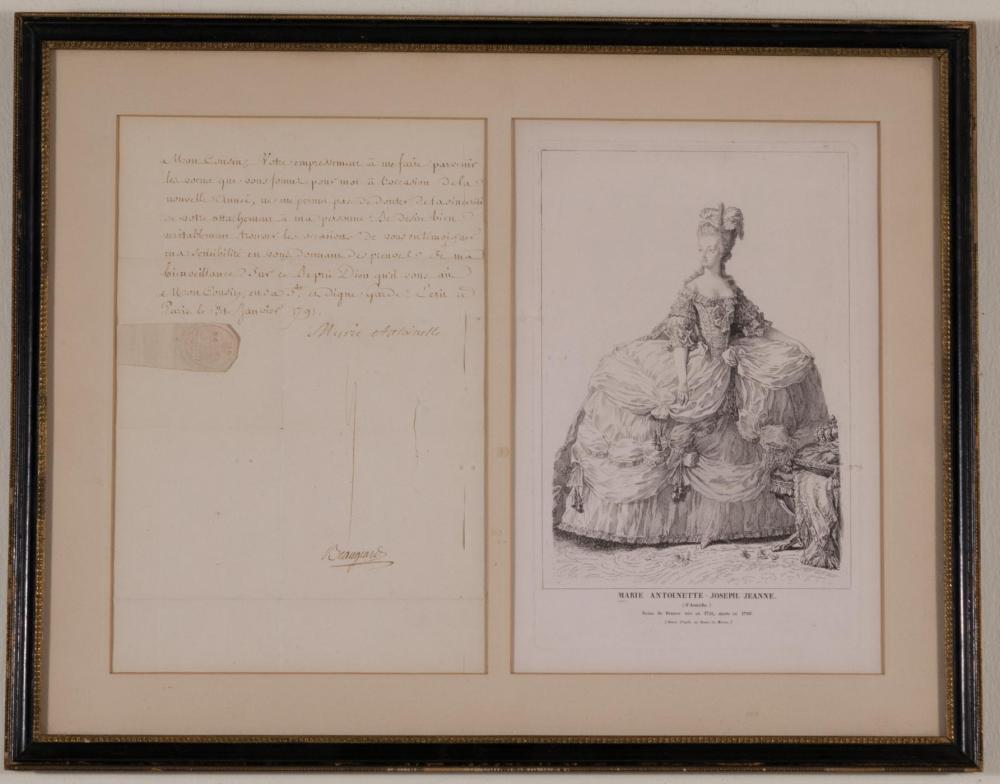 Mon Cousin, Votre empressement à me faire parvenir
les vœux que vous formez pour moi à l'occasion de la
nouvelle Année, ne me permet pas de douter de la sincérité
de votre attachement à ma personne. Je desire bien
veritablement trouver les occasions de vous en témoigner
ma sensibilité en vous donnant des preuves de ma
bienveillance Sur ce Je prie Dieu qu'il vous ait
Mon Cousin, en sa Ste et digne garde. Ecrit à
Paris le 31 Janvier 1791.
Marie Antoinette
Beaugeard
MARIE ANTOINETTE - JOSEPH JEANNE.
(d'Autriche)
Reine de France née en 1755, morte en 1793